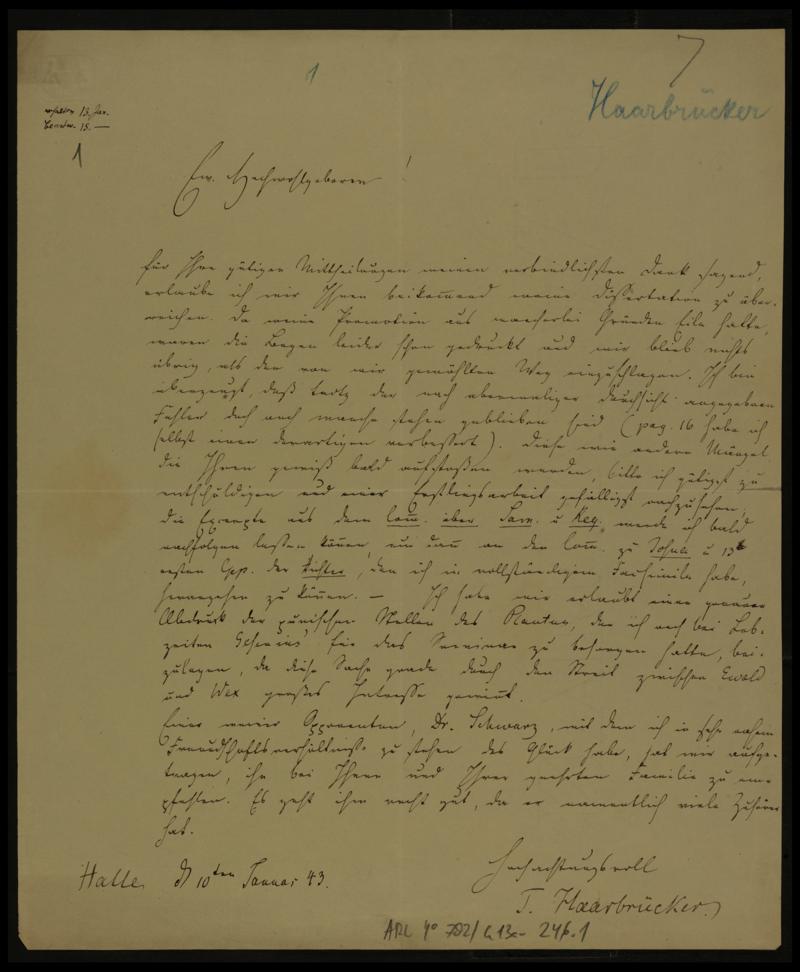 7
1
Haarbrücker
erhalten 13. Jan.
beantw. 15. —
1
Ew. Hochwohlgeboren!
für Ihre gütigen Mittheilungen meinen verbindlichsten Dank sagend,
erlaube ich mir Ihnen beikom̅end meine Dissertation zu über-
reichen. Da meine Promotion aus mancherlei Gründen Eile hatte,
waren die Bogen leider schon gedruckt und mir blieb nichts
übrig, als den von mir gewählten Weg einzuschlagen. Ich bin
überzeugt, daß trotz der nach abermaliger Durchsicht angegebenen
Fehler doch noch manche stehen geblieben sind (pag. 16 habe ich
selbst einen derartigen verbessert). Diese wie andere Mängel
die Ihnen gewiß bald aufstoßen werden, bitte ich gütigst zu
entschuldigen und einer Erstlingsarbeit gefälligst nachzusehen.
Die Excerpte aus dem Com̅. über Sam. u Reg. werde ich bald
nachfolgen lassen kön̅en, um dan̅ an den Com̅. zu Josua u
ersten Cpp. der Richter, den ich in vollständigem Facsimile habe,
herangehen zu kön̅en. — Ich habe mir erlaubt einen genauen
Abdruck der punischen Stellen des Plautus, den ich noch bei Leb-
zeiten Gesenius' für das Seminar zu besorgen hatte, bei-
zulegen, da diese Sache grade durch den Streit zwischen Ewald
und Wex großes Interesse gewin̅t.
Einer meiner Opponenten, Dr. Schwarz, mit dem ich in sehr nahem
Freundschaftsverhältniss zu stehen das Glück habe, hat mir aufge-
tragen, ihn bei Ihnen und Ihrer geehrten Familie zu em-
pfehlen. Es geht ihm recht gut, da er namentlich viele Zuhörer
hat.
Hochachtungsvoll
Halle d 10ten Januar 43.
T. Haarbrücker.
ARC 4° 792/ 246-1